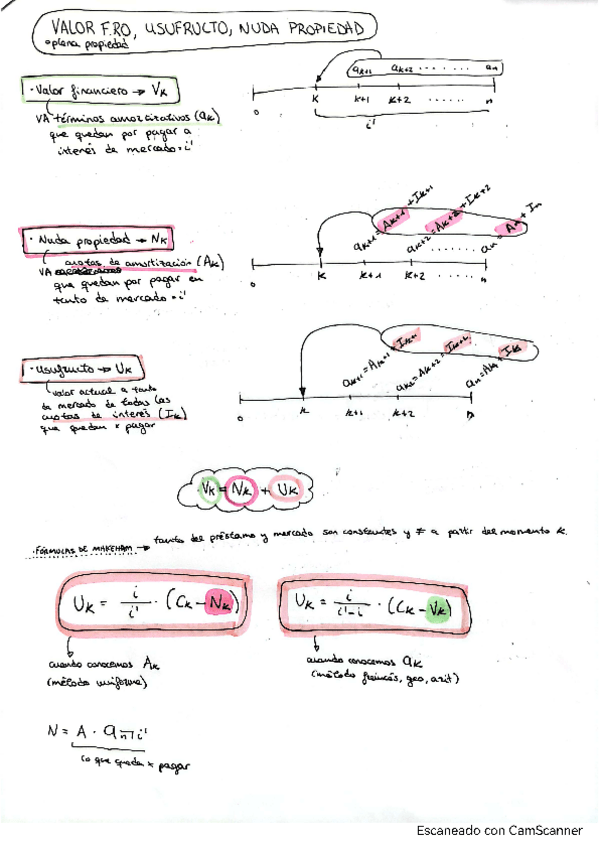 VALOR F.RO, USUFRUCTO, NUDA PROPIEDAD
plena propiedad
· Valor financiero → Vk
VA términos amortizativos (ak)
que quedan por pagar a
interés de mercado = i'
ak+1 ak+2 ...... an
0 k k+1 k+2 ...... n
i'
· Nuda propiedad → Nk
cuotas de amortización (Ak)
VA
que quedan por pagar en
tanto de mercado = i'
ak+1 = Ak+1 + Ik+1 ak+2 = Ak+2 + Ik+2 ...... an = An + In
0 k k+1 k+2 ...... n
· Usufructo → Uk
valor actual a tanto
de mercado de todas las
cuotas de interés (Ik)
que quedan x pagar
ak+1 = Ak+1 + Ik+1
0 k k+1 k+2 n
Vk = Nk + Uk
· FÓRMULAS DE MAKEHAM → tanto del préstamo y mercado son constantes y ≠ a partir del momento k.
Uk = i/i' · (Ck - Nk)
Uk = i/i'-i · (Ck - Vk)
cuando conocemos Ak
(método uniforme)
cuando conocemos ak
(método francés, geo, arit)
N = A · an¬i'
lo que quedan x pagar
Escaneado con CamScanner